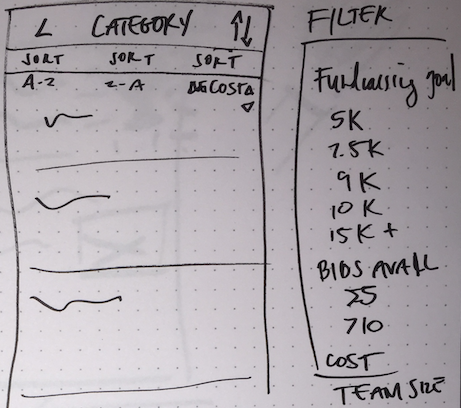 CATEGORY
SORT SORT SORT
A-Z Z-A COST
FILTER
Fundraising goal
5K
7.5K
9K
10K
15K+
BIDS AVAIL
710
COST
TEAM SIZE